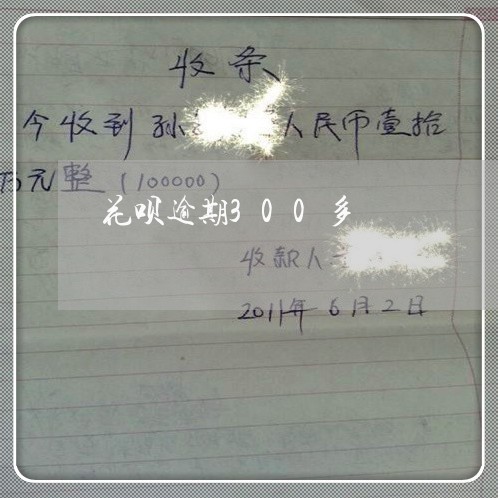 收条
今收到孙 人民币壹拾
万元整(100000)
花呗逾期300多
收款人
2011年6月2日